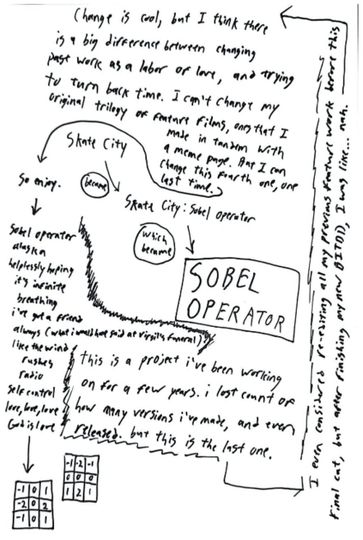 Change is cool, but I think there
is a big difference between changing
past work as a labor of love, and trying
to turn back time. I can't change my
original trilogy of feature films, ones that I
made in tandem with
a meme page. But I can
change this fourth one, one
last time.
Skate City
became
Skate City: Sobel operator
which
became
SOBEL
OPERATOR
So enjoy.
Sobel operator
alaska
helplessly hoping
it's infinite
breathing
i've got a friend
always (what i would have said at Virgil's funeral)
like the wind
rushes
radio
self control
love, love, love
God is love
-1 0 1
-2 0 2
-1 0 1
-1 -2 -1
0 0 0
1 2 1
this is a project i've been working
on for a few years. i lost count of
how many versions i've made, and even
released. but this is the last one.
I even considered re-editing all my previous feature work before this
final cut, but after finishing my new I was like... nah.